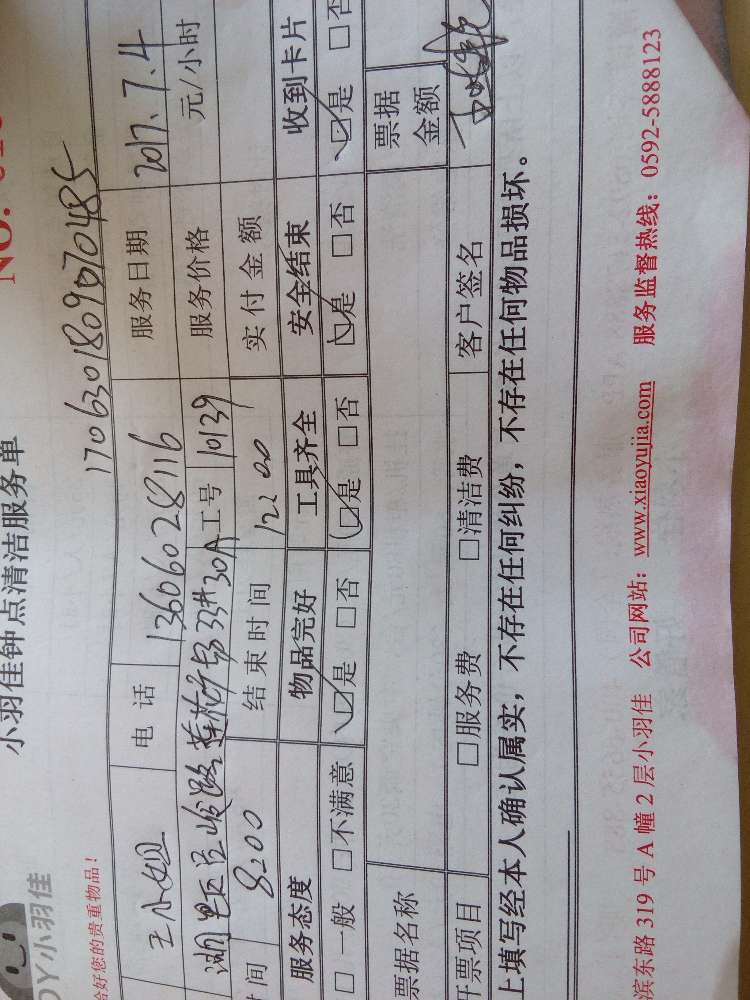 NO.
小羽佳钟点清洁服务单
OY小羽佳
170630180970485
恰好您的贵重物品!
王小姐 电话 13606028116 服务日期 2017.7.4
工号 10139 服务价格 元/小时
间 8:00 结束时间 12:00 实付金额
服务态度 物品完好 工具齐全 安全结束 收到卡片
□一般 □不满意 ☑是 □否 ☑是 □否 ☑是 □否 ☑是 □否
票据名称 票据金额
开票项目 □服务费 □清洁费 客户签名
上填写经本人确认属实,不存在任何纠纷,不存在任何物品损坏。
滨东路 319 号 A 幢 2 层小羽佳 公司网站:www.xiaoyujia.com 服务监督热线:0592-5888123